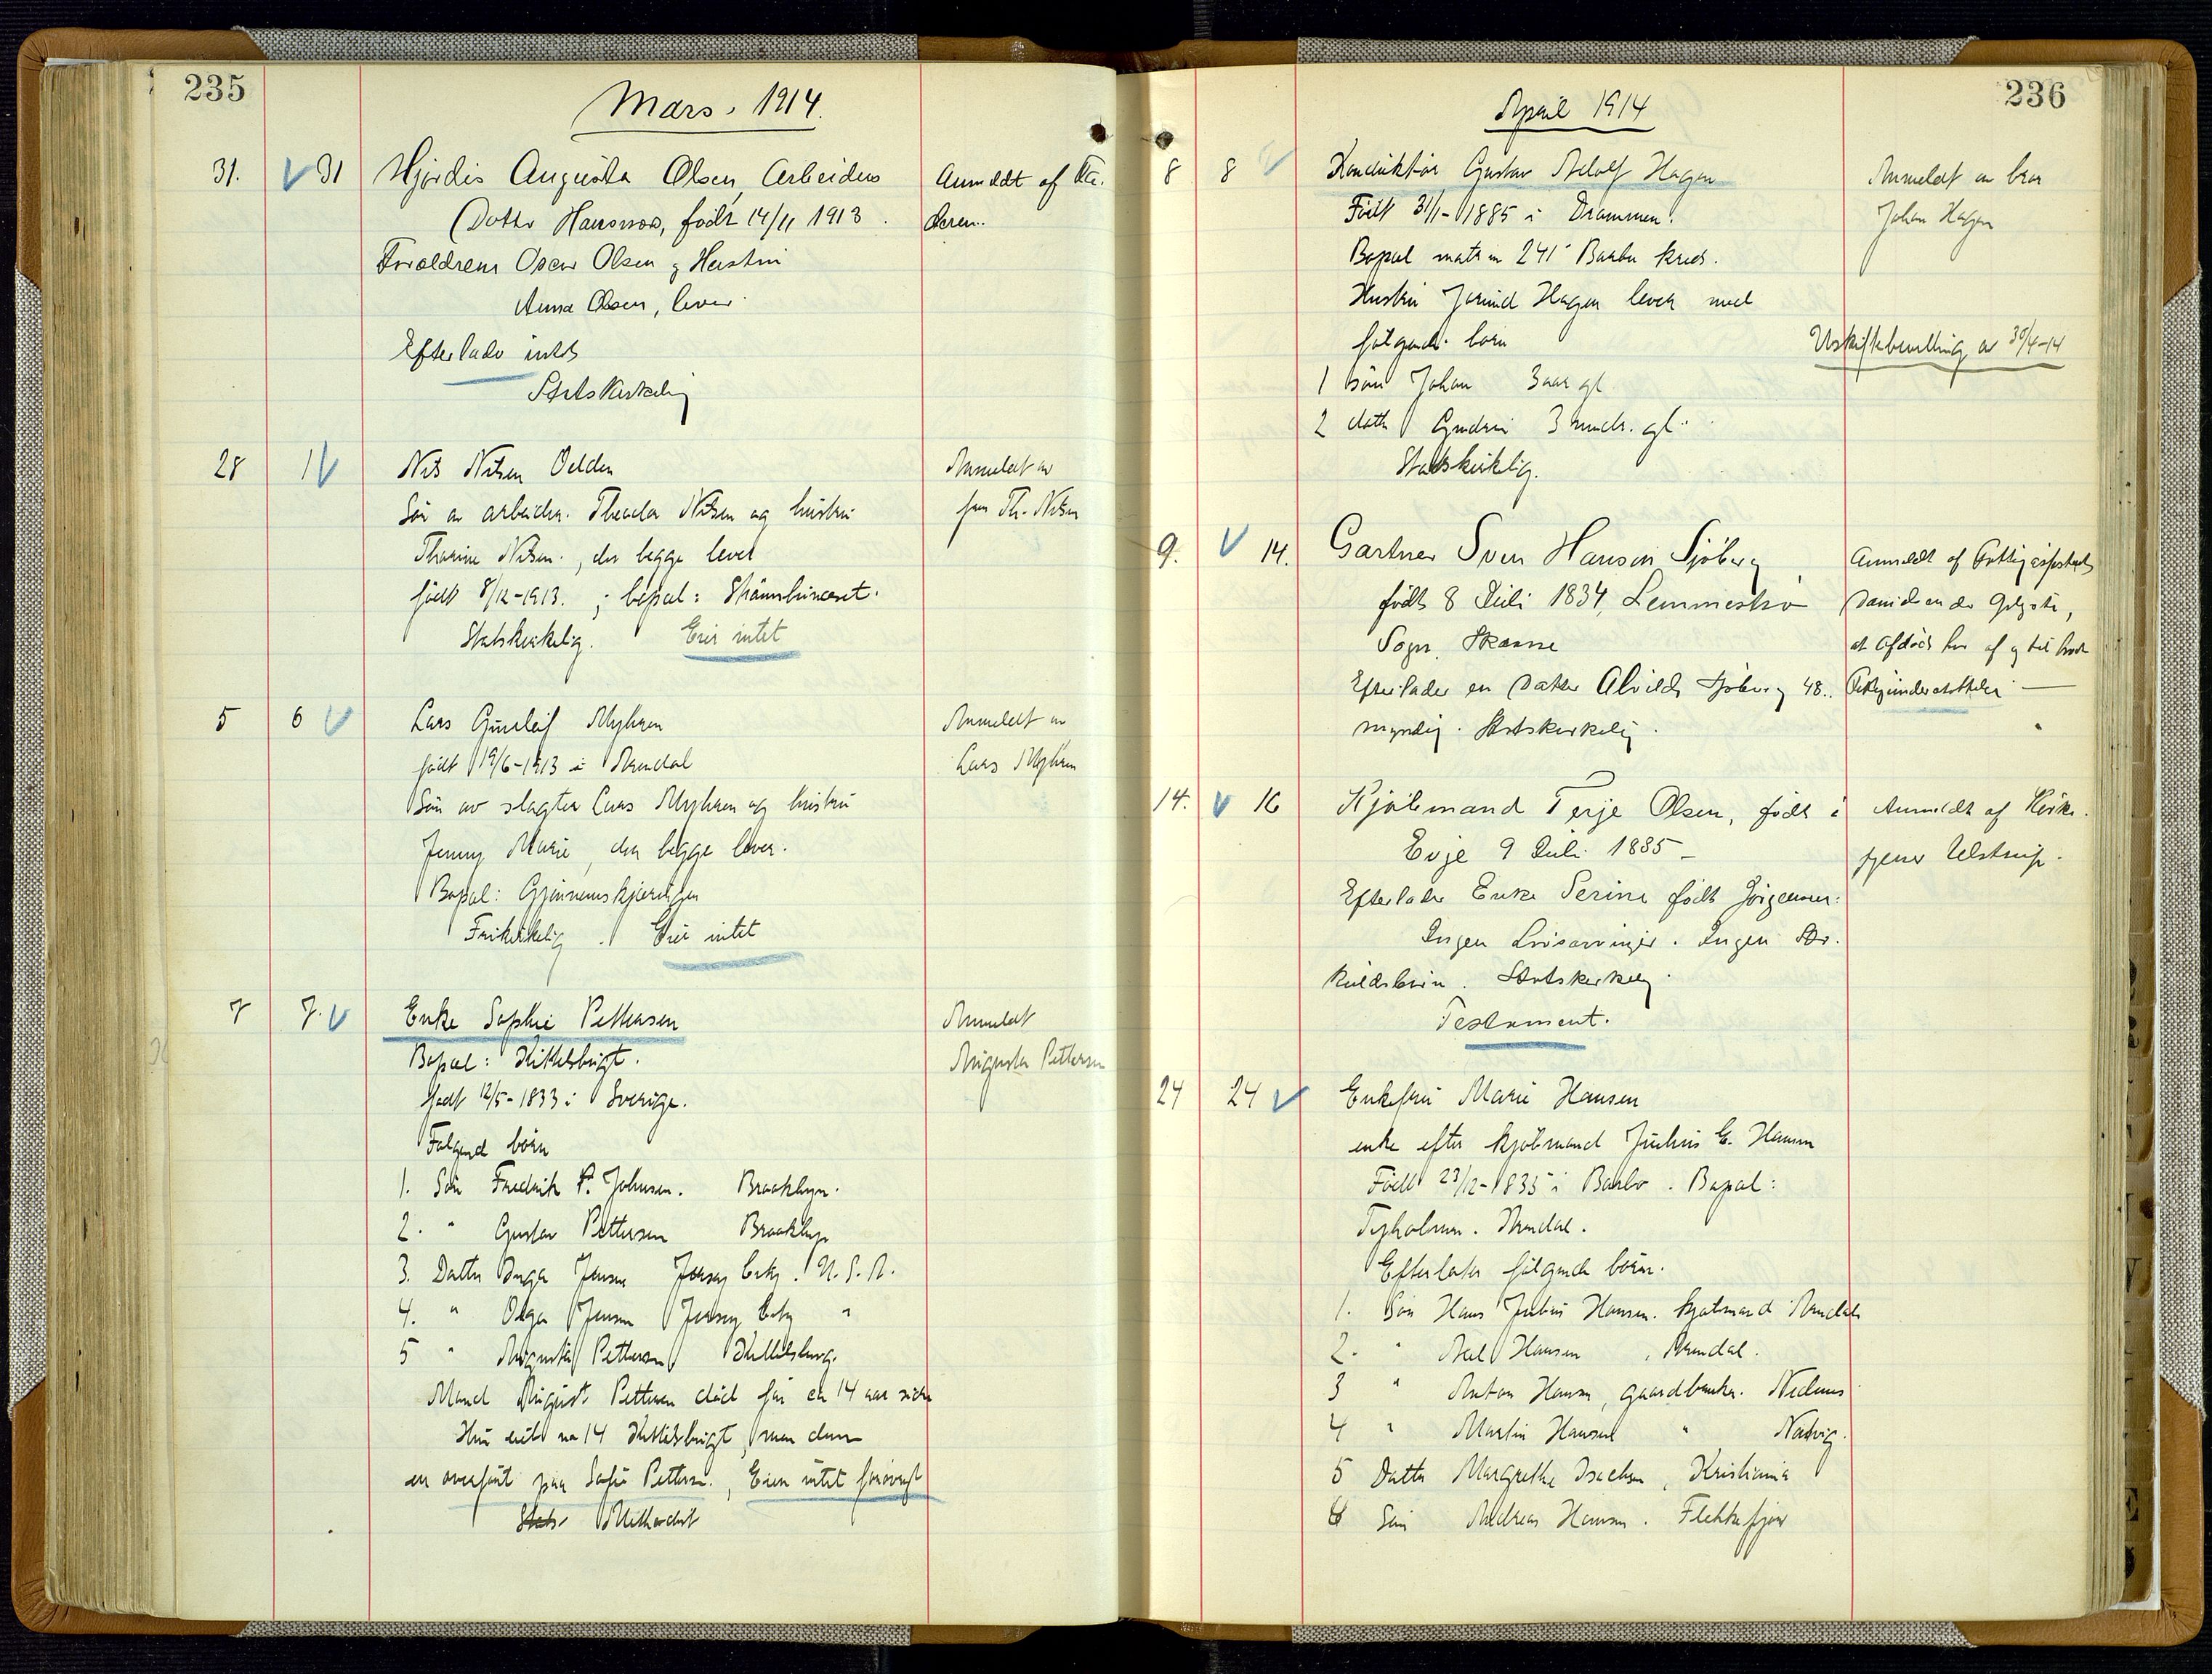 235
Mars. 1914.
31. 31 Hjørdis Augusta Olsen, Arbeiders Anmeldt af
(Datter født 14/11 1913. deren.
Forældrene Oscar Olsen og Hustru
Anna Olsen, lever.
Efterlader intet
Statskirkelig
28 1 Nils Nilsen Oelden Anmeldt av
Søn av arbeider Theodor Nilsen og hustru fru Th. Nilsen
Thorine Nilsen, der begge lever
født 8/12-1913. ; bopæl:
Statskirkelig. Eier intet
5 6 Lars Gunleif Myhren Anmeldt av
født 19/6-1913 i Arendal Lars Myhren
Søn av slagter Lars Myhren og hustru
Jenny Marie, der begge lever.
Bopæl:
Frikirkelig. Eier intet
7 7. Enke Sophie Pettersen Anmeldt
Bopæl: Kittelsbugt. Augusta Pettersen
født 12/5-1833 i Sverige.
Følgende børn
1. Søn Fredrik P. Johnsen. Brooklyn.
2. " Gustav Pettersen Brooklyn
3. Datter Inga Jensen Jersey City. U.S.A.
4. " Olga Jensen Jersey City "
5 " Augusta Pettersen Kittelsbugt.
Mand August Pettersen død for ca 14 aar siden
Hus no 14 Kittelsbugt, men denne
er overført paa Sofie Pettersen., Eier intet forøvrigt
Stats Methodist
236
April 1914
8 8 Konduktør Gustav Adolf Hagen Anmeldt av bror
Født 31/1-1885 i Drammen. Johan Hagen
Bopæl matr nr 241 Barbu kreds.
Hustru Hagen lever med
følgende børn Uskiftebevilling av 30/4-14
1 søn Johan 3 aar gl
2 datter 3 mndr. gl.
Statskirkelig.
9. 14. Gartner Sven Hansen Sjøberg Anmeldt af
født 8 Juli 1834, Danielsen
Sogn, Skaane at afdøde har af og til havt
Efterlader en Datter Alvilde Sjøberg 48..
myndig. Statskirkelig.
14. 16 Kjøbmand Terje Olsen, født i Anmeldt af Kirke.
Evje 9 Juli 1885 tjener Ulstrup.
Efterlader Enke Serine født Jørgensen.
Ingen Livsarvinger. Ingen Sær-
kuldsbørn. Statskirkelig.
Testament.
24 24 Enkefru Marie Hansen
enke efter kjøbmand Julius E. Hansen
Født 23/12-1835 i Barbo. Bopæl:
Tyholmen. Arendal.
Efterlater følgende børn.
1. Søn Hans Julius Hansen. kjøbmand Arendal
2. " Axel Hansen, Arendal.
3 " Anton Hansen, gaardbruker. Nedenes
4 " Martin Hansen "
5 Datter Margrethe Isachsen, Kristiania
6 Søn Andreas Hansen. Flekkefjord